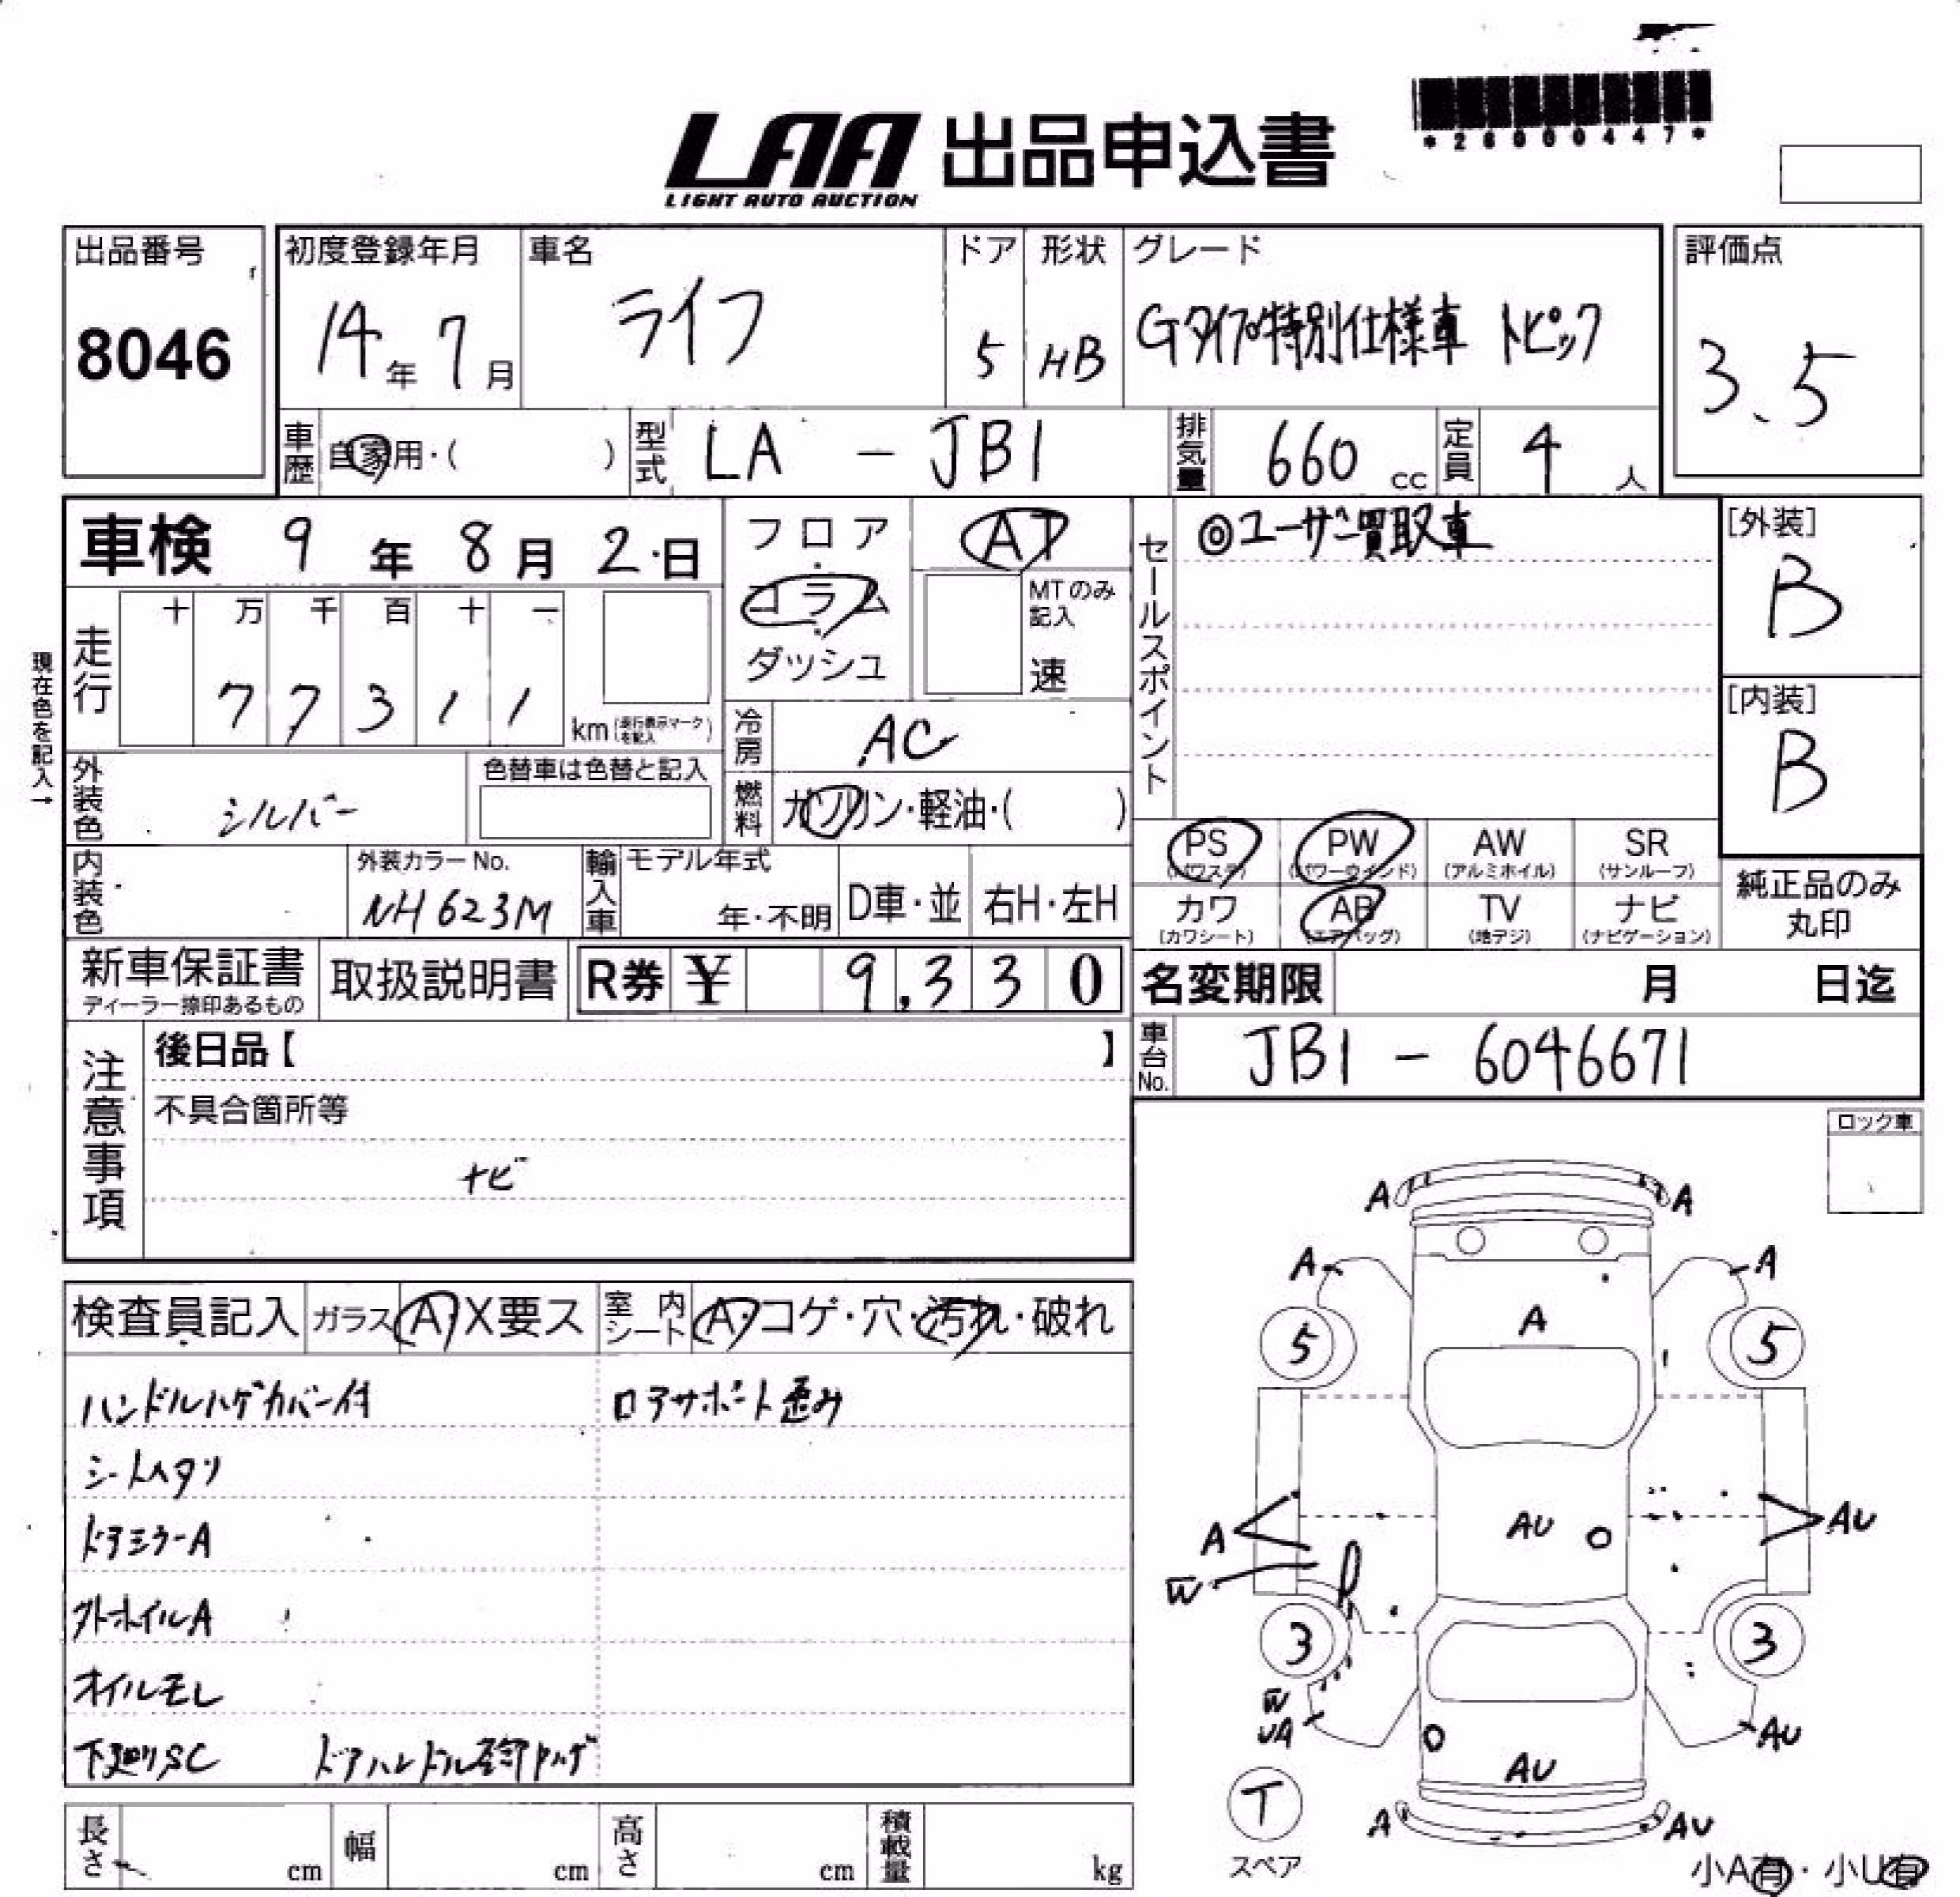 *26000447*
LAA 出品申込書
LIGHT AUTO AUCTION
出品番号
8046
初度登録年月
14年 7月
車名
ライフ
ドア
5
形状
HB
グレード
Gタイプ特別仕様車 トピック
評価点
3.5
車歴
自家用・( )
型式
LA - JB1
排気量
660 cc
定員
4 人
車検 9年 8月 2日
フロア・コラム・ダッシュ
AT
MTのみ記入
速
セールスポイント
◎ユーザー買取車
[外装]
B
[内装]
B
現在色を記入→
走行
十 万 千 百 十 一
7 7 3 1 1
km (走行表示マークを記入)
冷房
AC
外装色
シルバー
色替車は色替と記入
燃料
ガソリン・軽油・( )
PS
(パワステ)
PW
(パワーウインド)
AW
(アルミホイル)
SR
(サンルーフ)
カワ
(カワシート)
AB
(エアバッグ)
TV
(地デジ)
ナビ
(ナビゲーション)
純正品のみ
丸印
内装色
外装カラーNo.
NH623M
輸入車
モデル年式
年・不明
D車・並
右H・左H
新車保証書
ディーラー捺印あるもの
取扱説明書
R券 ¥ 9,330
名変期限 月 日迄
車台No.
JB1 - 6046671
注意事項
後日品【 】
不具合箇所等
ナビ
ロック車
検査員記入
ガラス A・X要ス
室内シート A・コゲ・穴・汚れ・破れ
ハンドルハゲカバー付
ロアサポート歪み
シートヘタリ
ドアミラーA
外ホイルA
オイルモレ
下廻りSC
A A
A A
A
5 5
A AU AU
W
3 3
W
UA AU
AU
T
スペア
A AU
小A有・小U有
長さ cm
幅 cm
高さ cm
積載量 kg